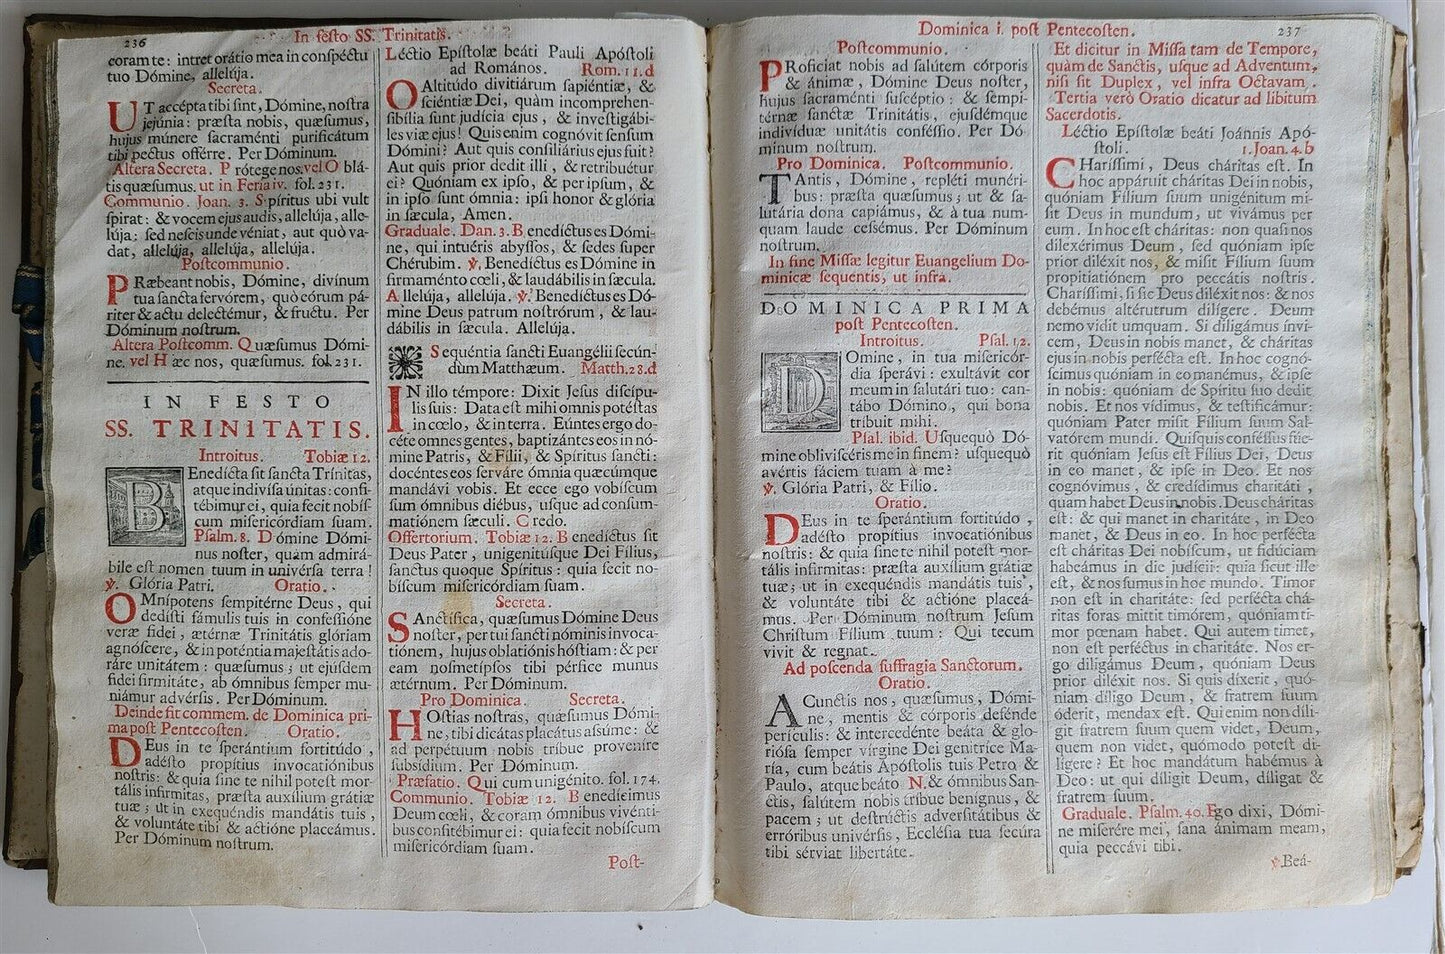 236
In festo SS. Trinitatis.
coram te: intret orátio mea in conspéctu
tuo Dómine, allelúja.
Secreta.
UT accépta tibi sint, Dómine, nostra
jejúnia: præsta nobis, quæsumus,
hujus múnere sacraménti purificátum
tibi pectus offérre. Per Dóminum.
Altera Secreta. Prótege nos. vel O blá-
tis quæsumus. ut in Feria iv. fol. 231.
Communio. Joan. 3. Spíritus ubi vult
spirat: & vocem ejus audis, allelúja, alle-
lúja; sed nescis unde véniat, aut quò va-
dat, allelúja, allelúja, allelúja.
Postcommunio.
PRæbeant nobis, Dómine, divínum
tua sancta fervórem, quò eórum pá-
riter & actu delectémur, & fructu. Per
Dóminum nostrum.
Altera Postcomm. Quæsumus Dómi-
ne. vel Hæc nos, quæsumus. fol. 231.
IN FESTO
SS. TRINITATIS.
Introitus. Tobiæ 12.
BEnedícta sit sancta Trínitas,
atque indivísa únitas: confi-
tébimur ei, quia fecit nobís-
cum misericórdiam suam.
Psalm. 8. Dómine Dómi-
nus noster, quàm admirá-
bile est nomen tuum in univérsa terra!
℣. Glória Patri. Oratio.
OMnípotens sempitérne Deus, qui
dedísti fámulis tuis in confessióne
veræ fídei, ætérnæ Trinitátis glóriam
agnóscere, & in poténtia majestátis ado-
ráre unitátem: quæsumus; ut ejúsdem
fídei firmitáte, ab ómnibus semper mu-
niámur advérsis. Per Dóminum.
Deinde fit commem. de Dominica pri-
ma post Pentecosten. Oratio.
DEus in te sperántium fortitúdo,
adésto propítius invocatiónibus
nostris: & quia sine te nihil potest mor-
tális infírmitas, præsta auxílium grátiæ
tuæ; ut in exequéndis mandátis tuis,
& voluntáte tibi & actióne placeámus.
Per Dóminum nostrum.
Léctio Epístolæ beáti Pauli Apóstoli
ad Romános. Rom. 11. d
OAltitúdo divitiárum sapiéntiæ, &
sciéntiæ Dei, quàm incomprehen-
sibília sunt judícia ejus, & investigábi-
les viæ ejus! Quis enim cognóvit sensum
Dómini? Aut quis consiliárius ejus fuit?
Aut quis prior dedit illi, & retribuétur
ei? Quóniam ex ipso, & per ipsum, &
in ipso sunt ómnia: ipsi honor & glória
in sæcula, Amen.
Graduale. Dan. 3. Benedíctus es Dómi-
ne, qui intuéris abyssos, & sedes super
Chérubim. ℣. Benedíctus es Dómine in
firmaménto cœli, & laudábilis in sæcula.
Allelúja, allelúja. ℣. Benedíctus es Dó-
mine Deus patrum nostrórum, & lau-
dábilis in sæcula. Allelúja.
Sequéntia sancti Euangélii secún-
dùm Matthæum. Matth. 28. d
IN illo témpore: Dixit Jesus discípu-
lis suis: Data est mihi omnis potéstas
in cœlo, & in terra. Eúntes ergo do-
céte omnes gentes, baptizántes eos in nó-
mine Patris, & Fílii, & Spíritus sancti:
docéntes eos serváre ómnia quæcúmque
mandávi vobis. Et ecce ego vobíscum
sum ómnibus diébus, usque ad consum-
matiónem sæculi. Credo.
Offertorium. Tobiæ 12. Benedíctus sit
Deus Pater, unigenitúsque Dei Fílius,
sanctus quoque Spíritus: quia fecit no-
bíscum misericórdiam suam.
Secreta.
SAnctífica, quæsumus Dómine Deus
noster, per tui sancti nóminis invoca-
tiónem, hujus oblatiónis hóstiam: & per
eam nosmetípsos tibi pérfice munus
ætérnum. Per Dóminum.
Pro Dominica. Secreta.
HOstias nostras, quæsumus Dómi-
ne, tibi dicátas placátus assúme: &
ad perpétuum nobis tríbue proveníre
subsídium. Per Dóminum.
Præfatio. Qui cum unigénito. fol. 174.
Communio. Tobiæ 12. Benedícimus
Deum cœli, & coram ómnibus vivénti-
bus confitébimur ei: quia fecit nobíscum
misericórdiam suam.
Post-
Dominica i. post Pentecosten.
237
Postcommunio.
PRoficiat nobis ad salútem córporis
& ánimæ, Dómine Deus noster,
hujus sacraménti suscéptio: & sempi-
térnæ sanctæ Trinitátis, ejusdémque
indivíduæ unitátis conféssio. Per Dó-
minum nostrum.
Pro Dominica. Postcommunio.
TAntis, Dómine, repléti munéri-
bus: præsta quæsumus; ut & sa-
lutária dona capiámus, & à tua num-
quam laude cessémus. Per Dóminum
nostrum.
In fine Missæ legitur Euangelium Do-
minicæ sequentis, ut infra.
DOMINICA PRIMA
post Pentecosten.
Introitus. Psal. 12.
DOmine, in tua misericór-
dia sperávi: exultávit cor
meum in salutári tuo: can-
tábo Dómino, qui bona
tríbuit mihi.
Psal. ibid. Usquequò Dó-
mine oblivísceris me in finem? usquequò
avértis fáciem tuam à me?
℣. Glória Patri, & Filio.
Oratio.
DEus in te sperántium fortitúdo,
adésto propítius invocatiónibus
nostris: & quia sine te nihil potest mor-
tális infírmitas: præsta auxílium grátiæ
tuæ; ut in exequéndis mandátis tuis,
& voluntáte tibi & actióne placeá-
mus. Per Dóminum nostrum Jesum
Christum Fílium tuum: Qui tecum
vivit & regnat.
Ad poscenda suffragia Sanctorum.
Oratio.
ACunctis nos, quæsumus, Dómi-
ne, mentis & córporis defénde
perículis: & intercedénte beáta & glo-
riósa semper vírgine Dei genitríce Ma-
ría, cum beátis Apóstolis tuis Petro &
Paulo, atque beáto N. & ómnibus San-
ctis, salútem nobis tríbue benígnus, &
pacem; ut destrúctis adversitátibus &
erróribus univérsis, Ecclésia tua secúra
tibi sérviat libertáte.
Et dicitur in Missa tam de Tempore,
quàm de Sanctis, usque ad Adventum,
nisi sit Duplex, vel infra Octavam.
Tertia verò Oratio dicatur ad libitum
Sacerdotis.
Léctio Epístolæ beáti Joánnis Apó-
stoli. 1. Joan. 4. b
CHaríssimi, Deus cháritas est. In
hoc appáruit cháritas Dei in nobis,
quóniam Fílium suum unigénitum mi-
sit Deus in mundum, ut vivámus per
eum. In hoc est cháritas: non quasi nos
dilexérimus Deum, sed quóniam ipse
prior diléxit nos, & misit Fílium suum
propitiatiónem pro peccátis nostris.
Charíssimi, si sic Deus diléxit nos: & nos
debémus altérutrum dilígere. Deum
nemo vidit umquam. Si diligámus ínvi-
cem, Deus in nobis manet, & cháritas
ejus in nobis perfécta est. In hoc cognó-
scimus quóniam in eo manémus, & ipse
in nobis: quóniam de Spíritu suo dedit
nobis. Et nos vídimus, & testificámur:
quóniam Pater misit Fílium suum Sal-
vatórem mundi. Quisquis conféssus fúe-
rit quóniam Jesus est Fílius Dei, Deus
in eo manet, & ipse in Deo. Et nos
cognóvimus, & credídimus charitáti,
quam habet Deus in nobis. Deus cháritas
est: & qui manet in charitáte, in Deo
manet, & Deus in eo. In hoc perfécta
est cháritas Dei nobíscum, ut fidúciam
habeámus in die judícii: quia sicut ille
est, & nos sumus in hoc mundo. Timor
non est in charitáte: sed perfécta chá-
ritas foras mittit timórem, quóniam ti-
mor pœnam habet. Qui autem timet,
non est perféctus in charitáte. Nos er-
go diligámus Deum, quóniam Deus
prior diléxit nos. Si quis díxerit, quó-
niam díligo Deum, & fratrem suum
óderit, mendax est. Qui enim non díli-
git fratrem suum quem videt, Deum,
quem non videt, quómodo potest di-
lígere? Et hoc mandátum habémus à
Deo: ut qui díligit Deum, díligat &
fratrem suum.
Graduale. Psalm. 40. Ego dixi, Dómi-
ne miserére mei, sana ánimam meam,
quia peccávi tibi.
℣ Beá-